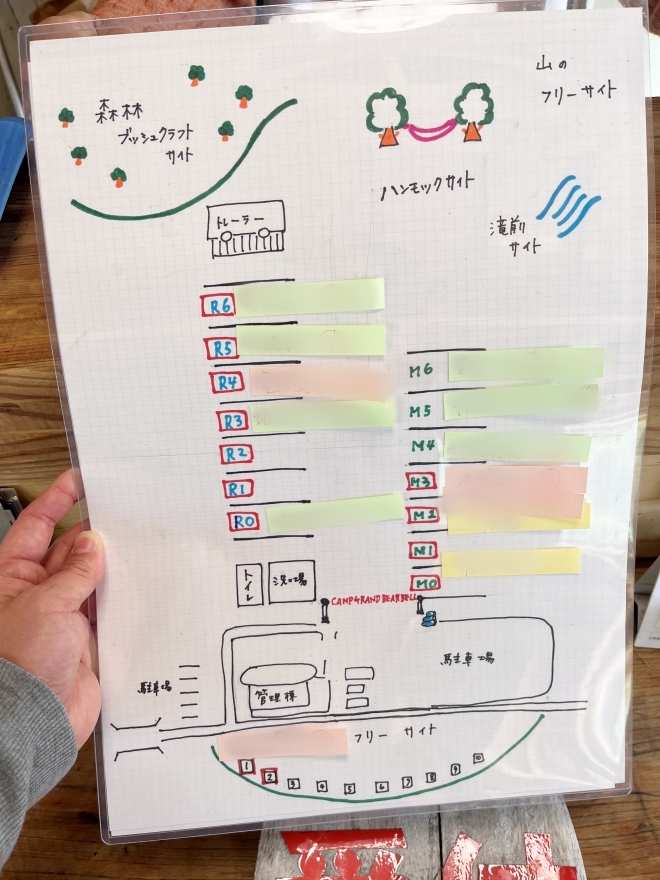 山の
フリーサイト
森林
ブッシュクラフト
サイト
ハンモックサイト
滝前
サイト
トレーラー
R6
R5
R4
R3
R2
R1
R0
M6
M5
M4
M3
M2
M1
M0
トイレ
洗い場
CAMPGRAND BEARBELL
駐車場
管理棟
駐車場
フリーサイト
1
2
3
4
5
6
7
8
9
10